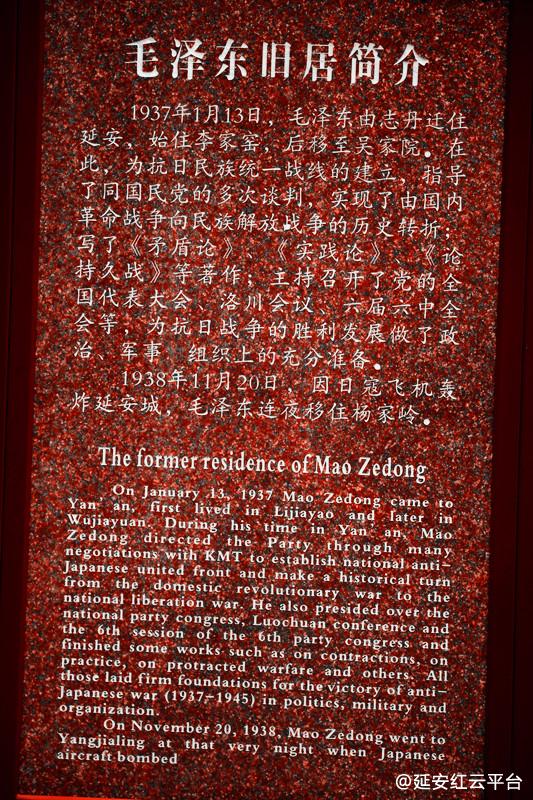 毛泽东旧居简介
1937年1月13日，毛泽东由志丹迁住
延安，始住李家窑，后移至吴家院。在
此，为抗日民族统一战线的建立，指导
了同国民党的多次谈判，实现了由国内
革命战争向民族解放战争的历史转折；
写了《矛盾论》、《实践论》、《论
持久战》等著作；主持召开了党的全
国代表大会、洛川会议、六届六中全
会等，为抗日战争的胜利发展做了政
治、军事、组织上的充分准备。
1938年11月20日，因日寇飞机轰
炸延安城，毛泽东连夜移住杨家岭。
The former residence of Mao Zedong
On January 13, 1937 Mao Zedong came to
Yan'an, first lived in Lijiayao and later in
Wujiayuan. During his time in Yan'an, Mao
Zedong directed the Party through many
negotiations with KMT to establish national anti-
Japanese united front and make a historical turn
from the domestic revolutionary war to the
national liberation war. He also presided over the
national party congress, Luochuan conference and
the 6th session of the 6th party congress and
finished some works such as on contractions, on
practice, on protracted warfare and others. All
those laid firm foundations for the victory of anti-
Japanese war (1937-1945) in politics, military and
organization.
On November 20, 1938, Mao Zedong went to
Yangjialing at that very night when Japanese
aircraft bombed
@延安红云平台